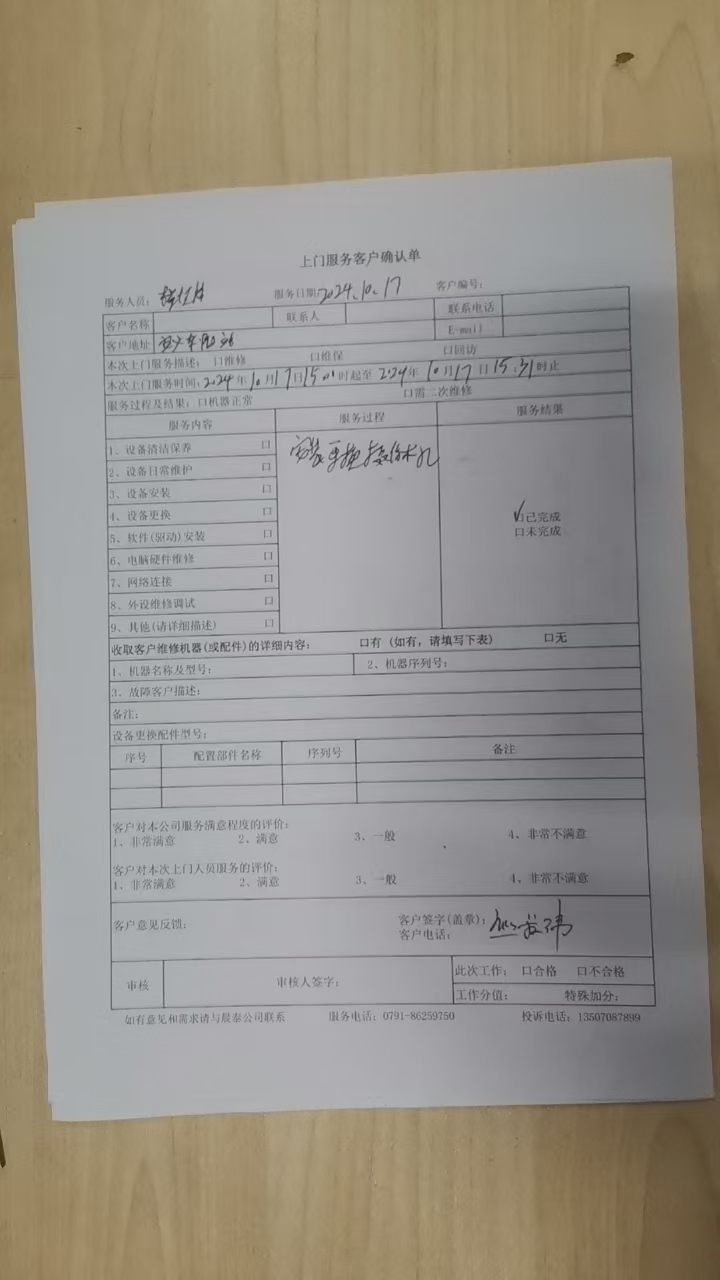 上门服务客户确认单
服务人员: 服务日期:2024.10.17 客户编号:
客户名称 联系人 联系电话
客户地址 E-mail
本次上门服务描述: 口维修 口维保 口回访
本次上门服务时间:2024年10月17日15:01时起至2024年10月17日15:31时止
服务过程及结果: 口机器正常 口需二次维修
服务内容 服务过程 服务结果
1、设备清洁保养 口
2、设备日常维护 口
3、设备安装 口
4、设备更换 口
5、软件(驱动)安装 口
6、电脑硬件维修 口
7、网络连接 口
8、外设维修调试 口
9、其他(请详细描述) 口
安装更换
口已完成
口未完成
收取客户维修机器(或配件)的详细内容: 口有 (如有,请填写下表) 口无
1、机器名称及型号: 2、机器序列号:
3、故障客户描述:
备注:
设备更换配件型号:
序号 配置部件名称 序列号 备注
客户对本公司服务满意程度的评价:
1、非常满意 2、满意 3、一般 4、非常不满意
客户对本次上门人员服务的评价:
1、非常满意 2、满意 3、一般 4、非常不满意
客户意见反馈: 客户签字(盖章):
客户电话:
审核 审核人签字: 此次工作: 口合格 口不合格
工作分值: 特殊加分:
如有意见和需求请与晨泰公司联系 服务电话: 0791-86259750 投诉电话: 13507087899